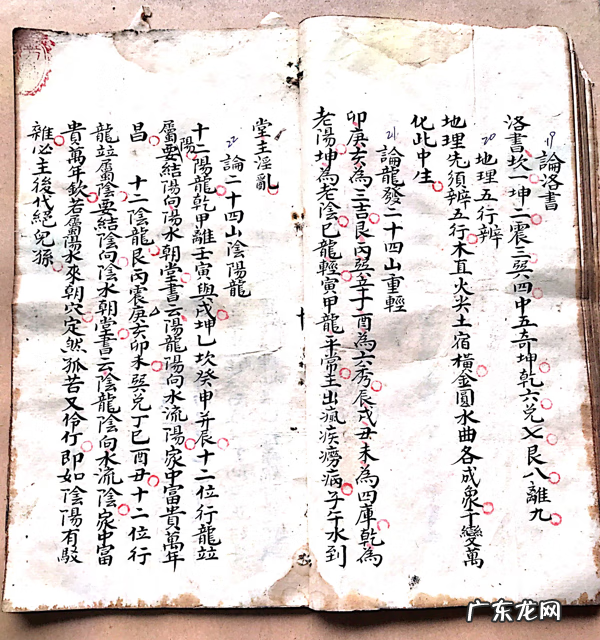 19 論洛書
洛書坎一坤二震三巽四中五奇坤乾六兌七艮八離九
20 地理五行辨
地理先須辨五行木直火尖土宿橫金圓水曲各成象千變萬
化此中生
21 論龍發二十四山重輕
卯庚亥為三吉艮丙巽辛子酉為六秀辰戌丑未為四庫乾為
老陽坤為老陰巳龍輕寅甲龍平常主出瘋疾癆病子午水到
堂主淫亂
22 論二十四山陰陽龍
十二陽龍乾甲離壬寅與戌坤乙坎癸申并辰十二位行龍並
屬陽要結陽向陽水朝堂書云陽龍陽向水流陽家中富貴萬年
昌 十二陰龍艮丙震庚亥卯未巽兌丁巳酉丑十二位行
龍並屬陰要結陰向陰水朝堂書云陰龍陰向水流陰家中富
貴萬年欽若屬陽水來朝穴定然孤苦又伶仃即如陰陽有駁
雜必主後代絕兒孫
广东龙网